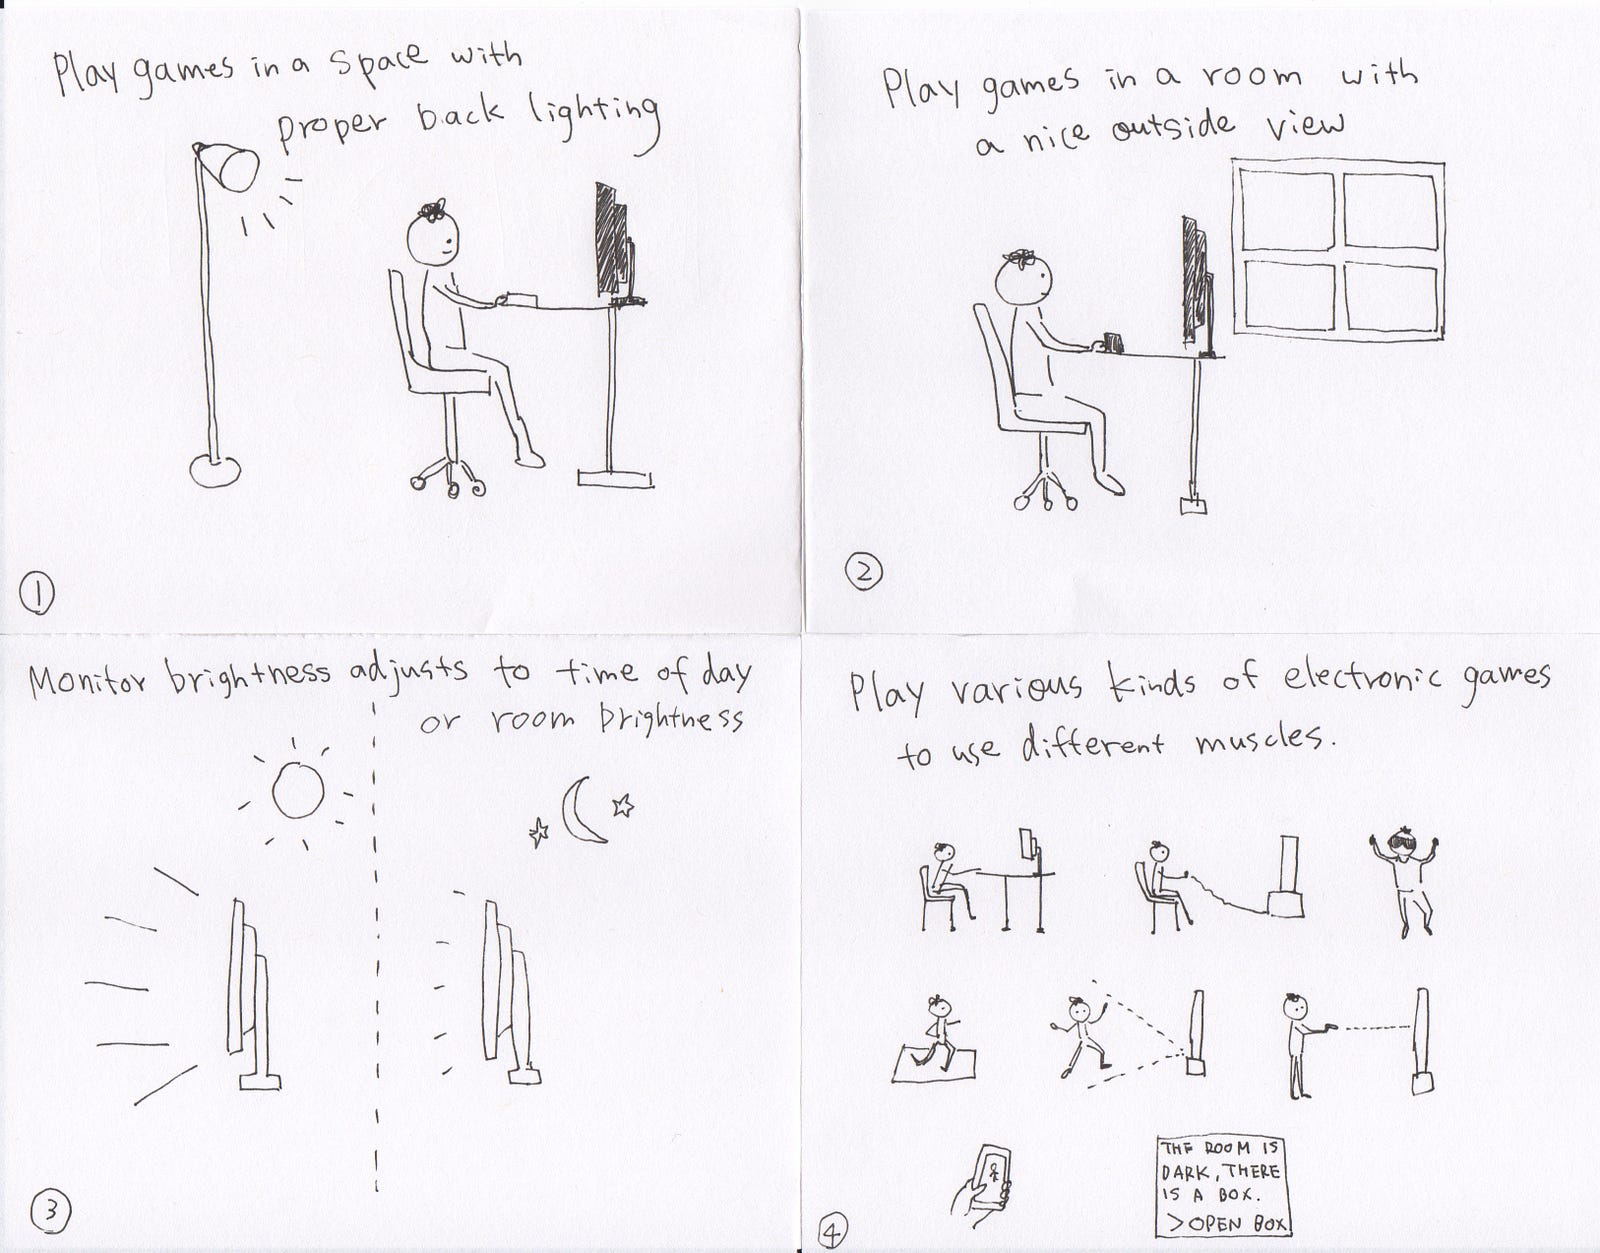 Play games in a space with
proper back lighting
1
Play games in a room with
a nice outside view
2
Monitor brightness adjusts to time of day
or room brightness
3
Play various kinds of electronic games
to use different muscles.
THE ROOM IS
DARK, THERE
IS A BOX.
>OPEN BOX
4